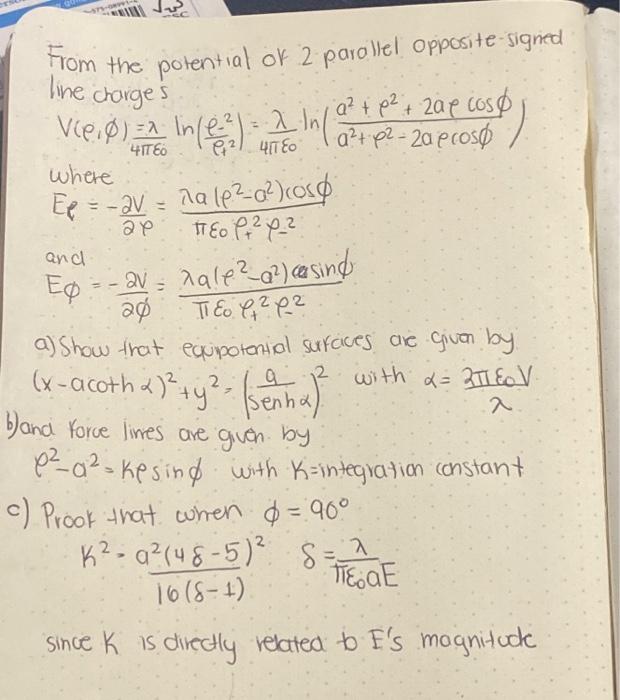 From the potential of 2 parallel opposite-signed
line charges
V(ρ,ϕ) = λ/4πε0 ln(ρ-²/ρ+²) = λ/4πε0 ln( (a² + ρ² + 2aρ cosϕ) / (a² + ρ² - 2aρcosϕ) )
where
Eρ = -∂V/∂ρ = λa(ρ²-a²)cosϕ / πε0 ρ+² ρ-²
and
Eϕ = -∂V/∂ϕ = λa(ρ²-a²) sinϕ / πε0 ρ+² ρ-²
a) Show that equipotential surfaces are given by
(x - acoth α)² + y² = (a/senhα)² with α = 2πε0V/λ
b) and force lines are given by
ρ² - a² = Kρ sinϕ with K = integration constant
c) Proof that when ϕ = 90°
K² = a²(4δ-5)² / 16(δ-1) δ = λ/πε0aE
since K is directly related to E's magnitude